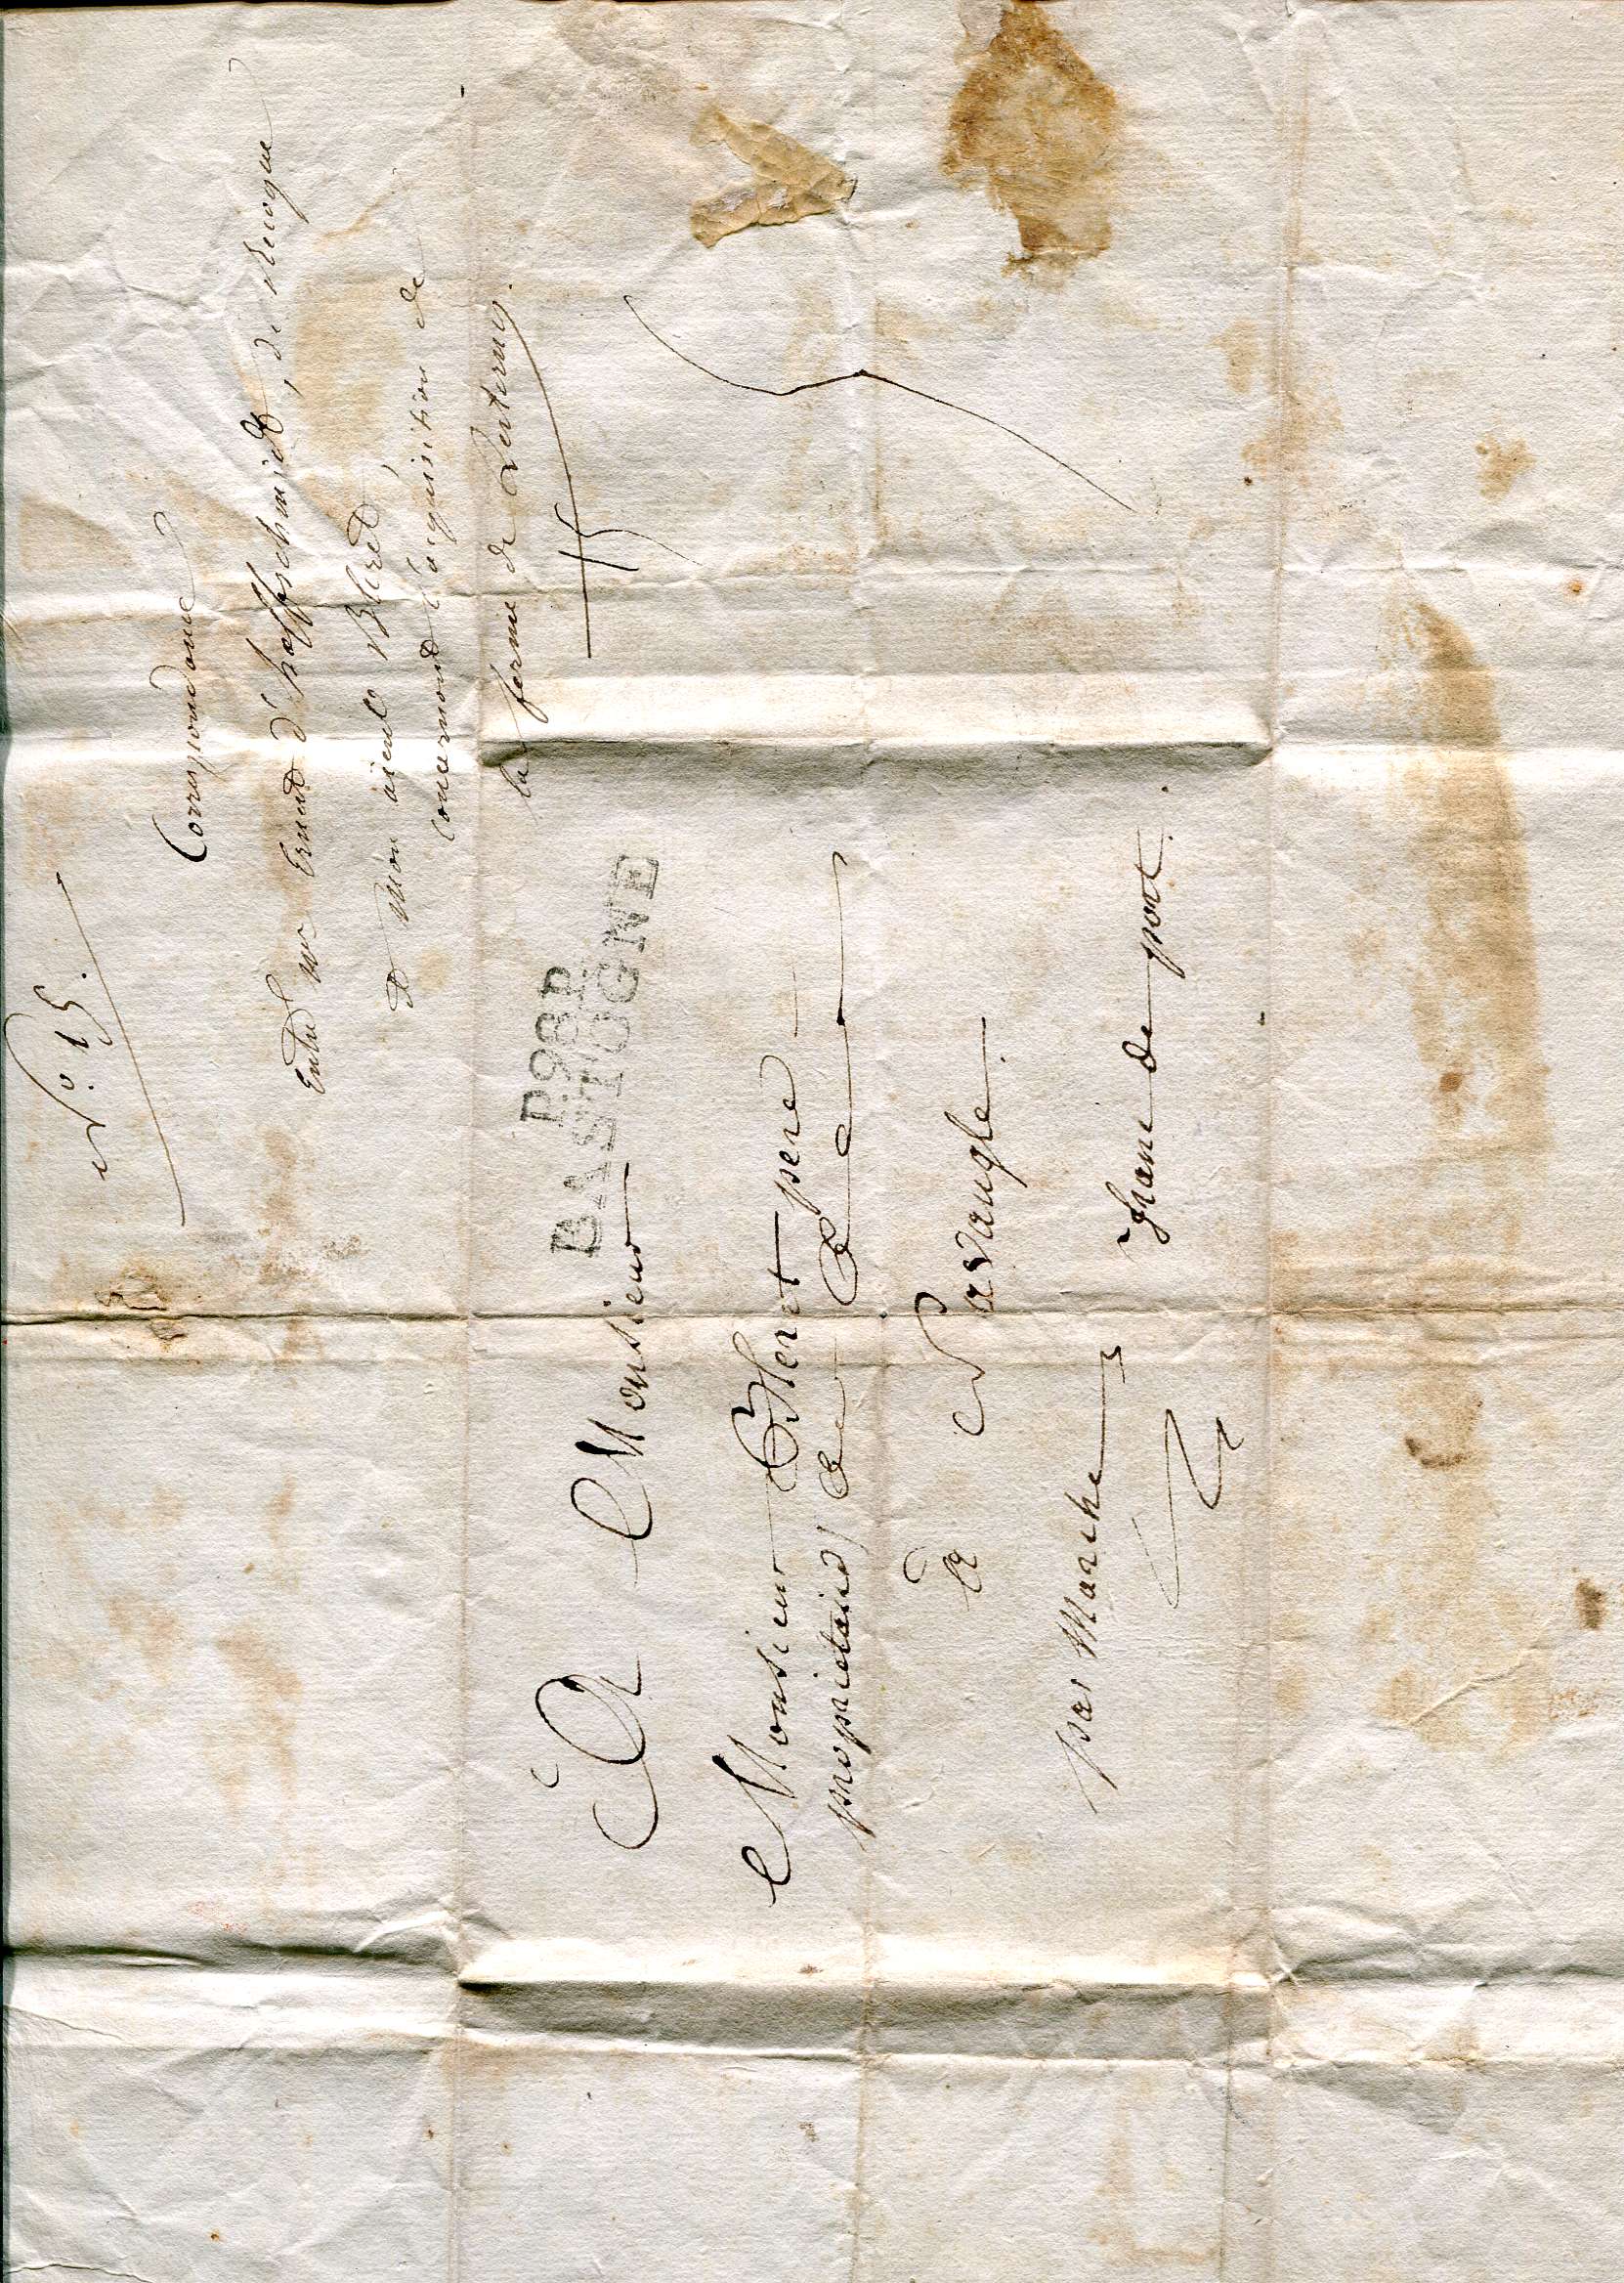 N.o 15.
Correspondance
Entre mr Ernest d'hoffschmidt, de Recogne
et mon aieul Bleret,
concernant l'acquisition de
la ferme de
P98P
BASTOGNE
A Monsieur
Monsieur Bleret pere
propietaire
à Navaugle.
par Marche
franc de port.